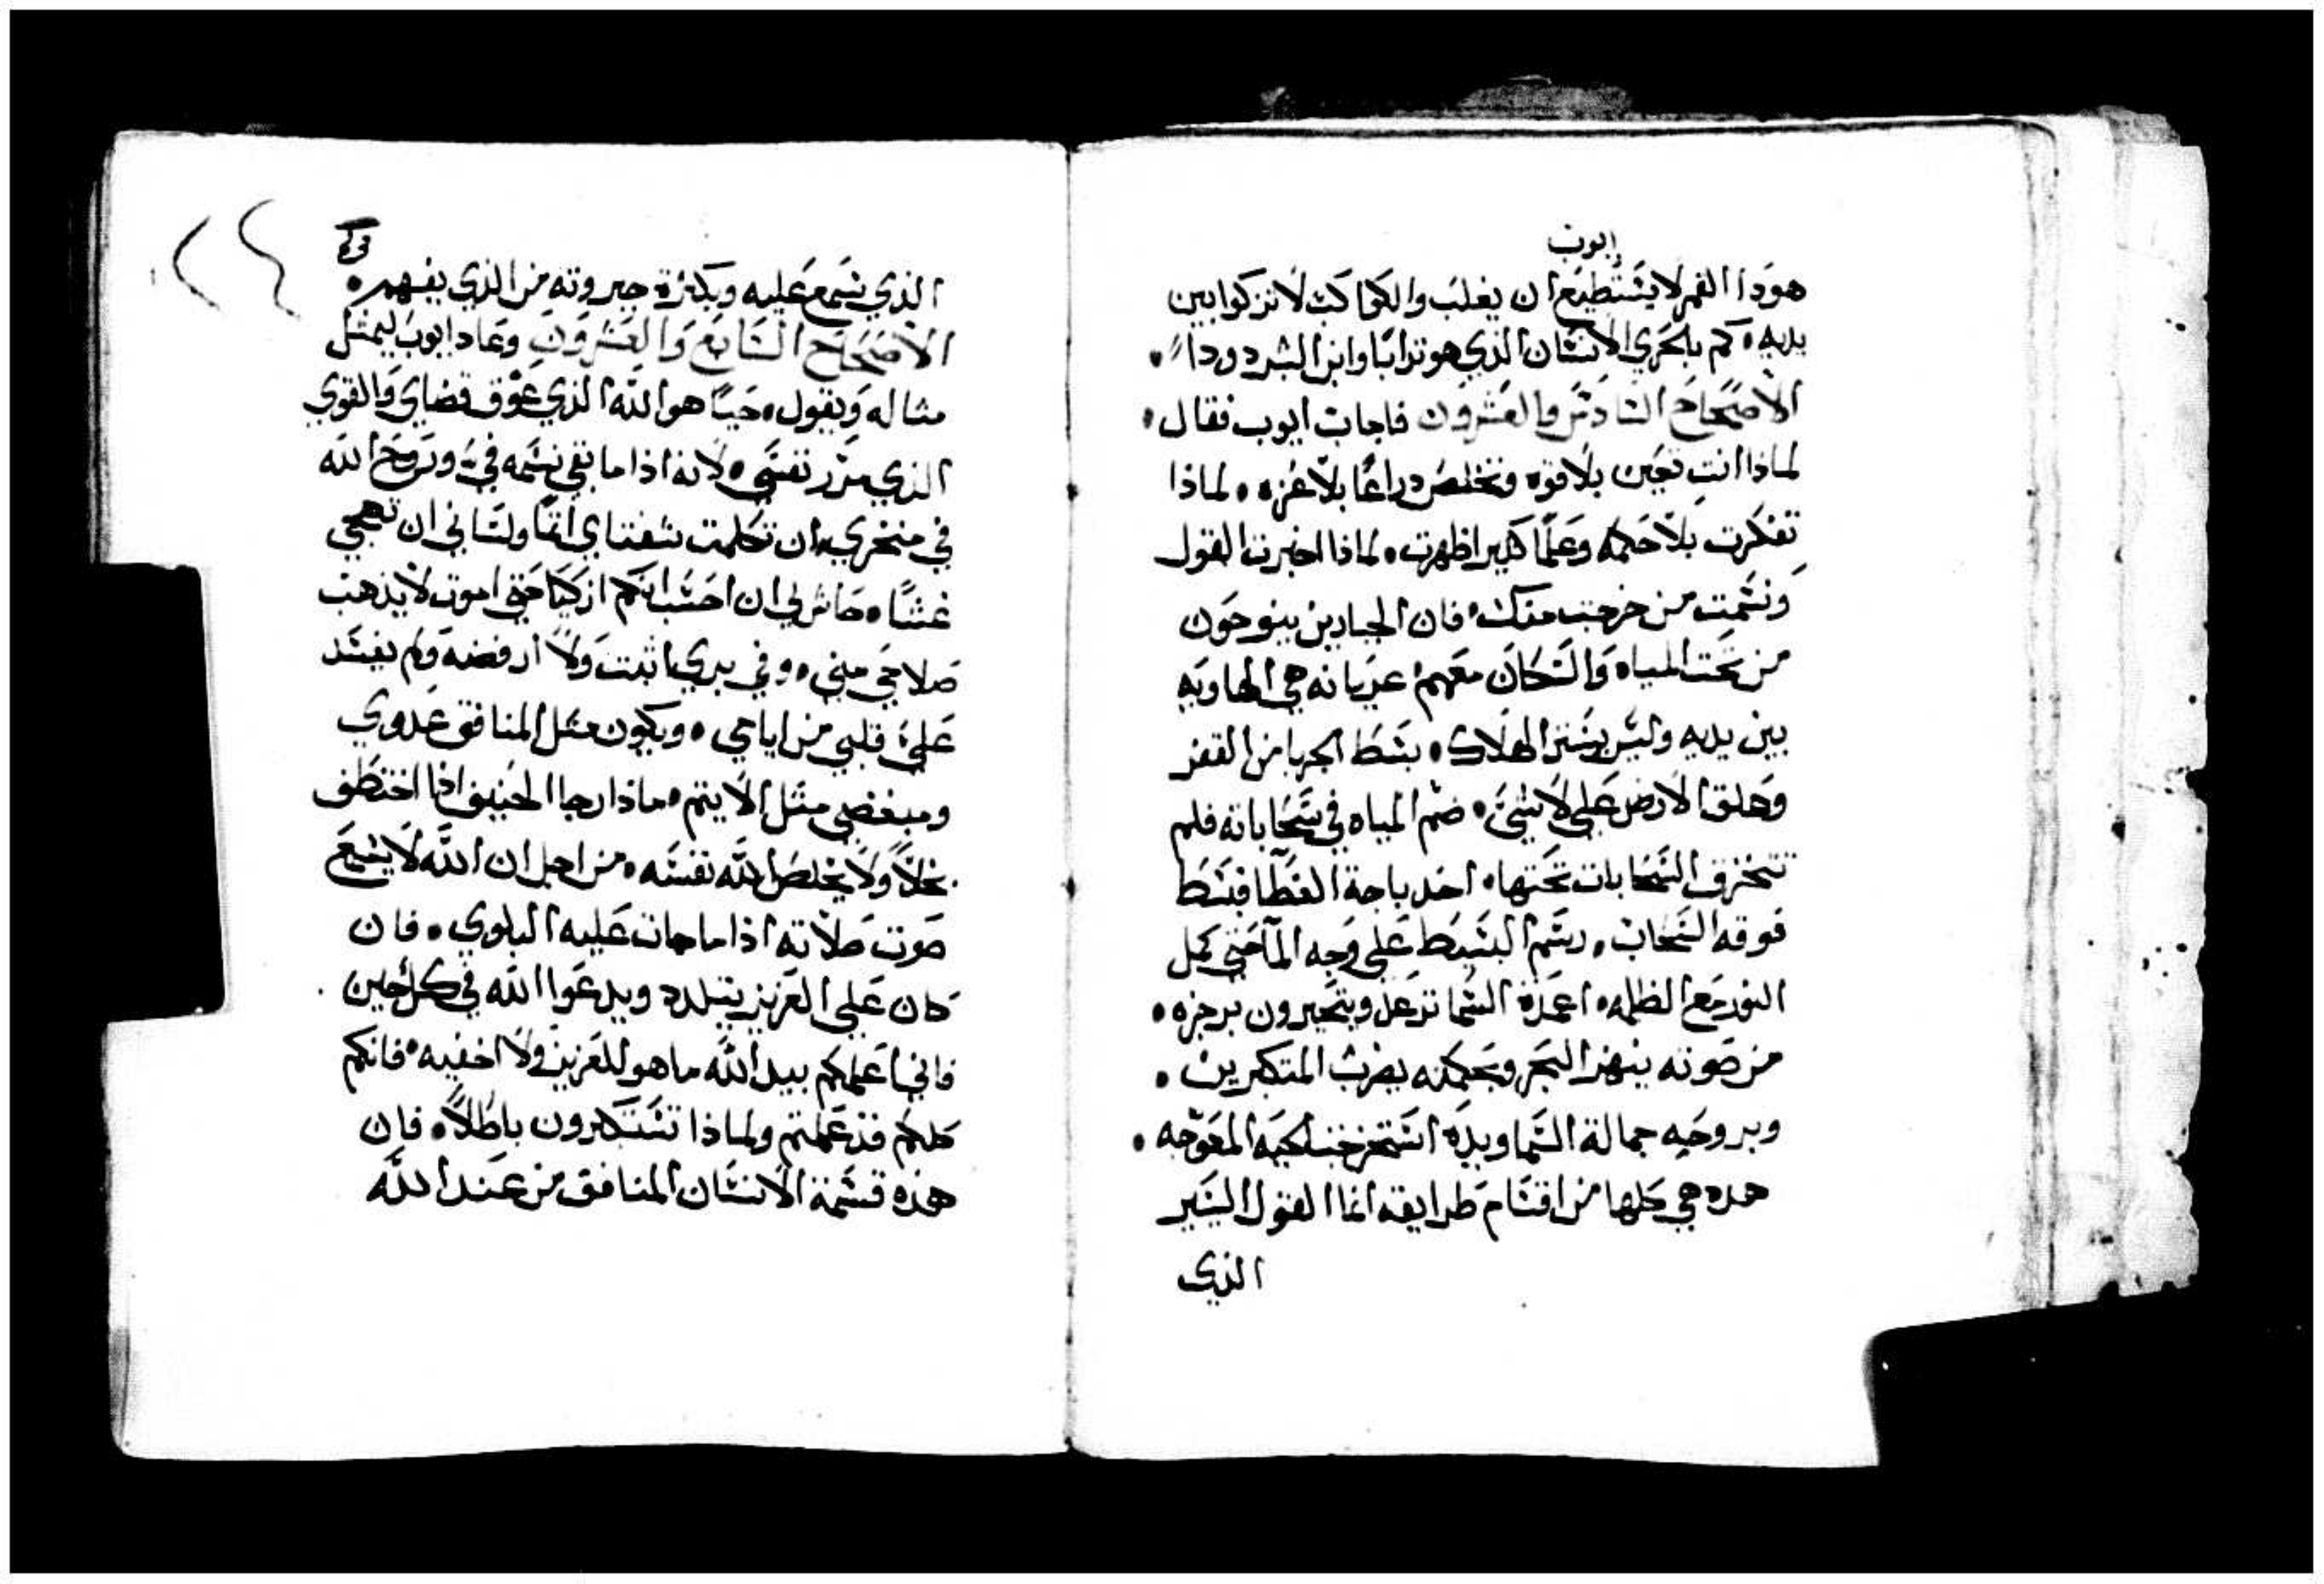 ايوب
هودا القمر لا يستطيع ان يغلب والكواكب لا تزكوا بين
يديه كم بالحري الانسان الذي هو ترابًا وابن البشر دودا
الاصحاح السادس والعشرون فاجاب ايوب فقال
لماذا انت تعين بلا قوه وتخلص دراعًا بلا عزه لماذا
تفكرت بلا حكمه وعلمًا كثير اظهرت لماذا اخبرت القول
ونسمت من خرجت منك فان الجبابرين ينوحون
من تحت المياه والسكان معهم عريانه هي الهاويه
بين يديه وليس يستر الهلاك بسط الجربا من القفر
وهلق الارض علي لا شيء ضم المياه في سحاباته فلم
تتخزق السحابات تحتها اخد باحة الغطا فبسط
فوقه السحاب رسم البسيط علي وجه الما حتي كمل
النور مع الظلمه اعمدة السما ترعد ويتحيرون برجزه
من صوته ينهز البحر وبحكمته يضرب المتكبرين
وبروحه جمالة السما وبيده استخرخت الحيه المعوجه
هده هي كلها من اقسام طرايقه انما القول اليسير
الذي
الذي نسمع عليه وبكثرة جبروته من الذي يفهم
الاصحاح السابع والعشرون وعاد ايوب ليمثل
مثاله ويقول حيًا هو الله الذي عوق قضاي والقوي
الذي مرر نفسي لانه اذا ما بقي نسمه فيّ وروح الله
في منخري ان تكلمت شفتاي اثمًا ولساني ان تهجي
غشًا حاش لي ان احسبانكم ازكيا حتي اموت لا يذهب
صلاحي مني وفي بري اثبت ولا ارفضه ولم يفسد
علي قلبي من ايامي ويكون مثل المنافق عدوي
ومبغضي مثل الاثيم ماذا رجا الحنيف اذا اختطف
بخلًا ولا يخلص الله نفسه من اجل ان الله لا يسمع
صوت صلاته اذا ما جات عليه البلوي فان
كان علي العزيز يتلدد ويدعوا الله في كل حين
فاني اعلمكم بيد الله ما هو للعزيز ولا اخفيه فانكم
كلكم قد علمتم ولماذا تستكبرون باطلًا فان
هذه قسمة الانسان المنافق من عند الله